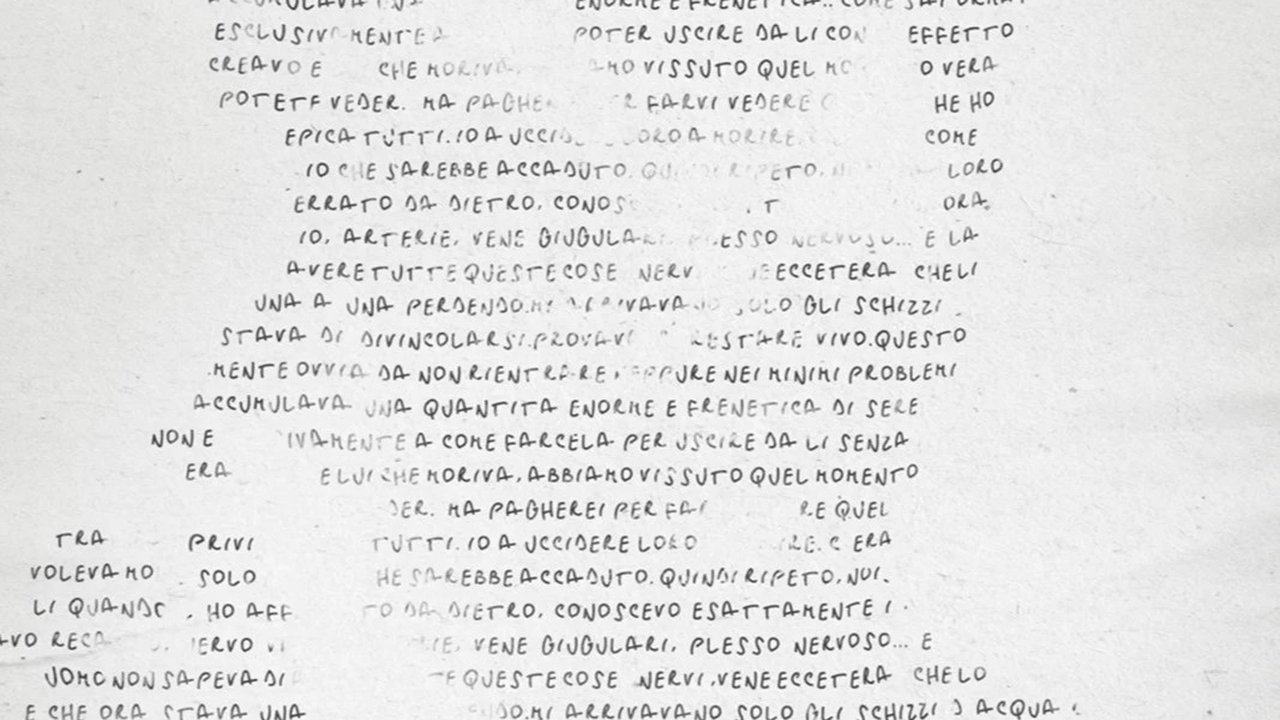 ESCLUSIV MENTE A POTER USCIRE DA LI CON EFFETTO
CREAVO E CHE MORIVA. AMO VISSUTO QUEL MO O VERA
POTETE VEDER. MA PAGHE ER FARVI VEDERE C HE HO
EPICA TUTTI. IO A UCCID ORO A MORIRE. COME
IO CHE SAREBBE ACCADUTO. QUINDI RIPETO. N LORO
ERRATO DA DIETRO. CONOS . T ORA.
IO. ARTERIE. VENE GIUGULARI. PLESSO NERVOSO... E LA
AVERE TUTTE QUESTE COSE NERV E ECCETERA CHE LI
UNA A UNA PERDENDO. MI ARRIVAVANO SOLO GLI SCHIZZI
STAVA DI DIVINCOLARSI. PROVAVA RESTARE VIVO. QUESTO
MENTE OVVIA DA NON RIENTRARE. EPPURE NEI MINIMI PROBLEMI
ACCUMULAVA UNA QUANTITA ENORME E FRENETICA DI SERE
NON E IVAMENTE A COME FARCELA PER USCIRE DA LI SENZA
ERA E LUI CHE MORIVA. ABBIAMO VISSUTO QUEL MOMENTO
DER. MA PAGHEREI PER FAR RE QUEL
TRA PRIVI TUTTI. IO A UCCIDERE LORO RE. C ERA
VOLEVAMO SOLO HE SAREBBE ACCADUTO. QUINDI RIPETO. NOI.
LI QUANDO . HO AFF TO DA DIETRO. CONOSCEVO ESATTAMENTE I
AVO RECA NERVO VI IE. VENE GIUGULARI. PLESSO NERVOSO... E
UOMO NON SAPEVA DI TE QUESTE COSE NERVI. VENE ECCETERA CHE LO
E CHE ORA STAVA UNA DO. MI ARRIVAVANO SOLO GLI SCHIZZI D ACQUA